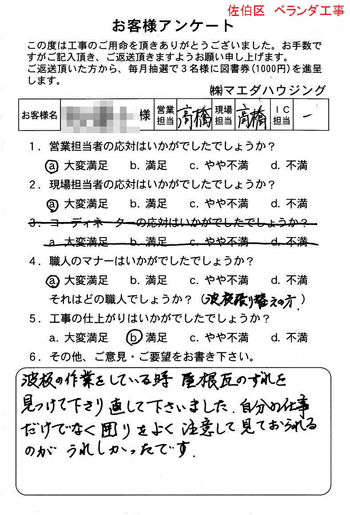 佐伯区 ベランダ工事
お客様アンケート
この度は工事のご用命を頂きありがとうございました。お手数で
すがご記入頂き、ご返送頂きますようお願い申し上げます。
ご返送頂いた方から、毎月抽選で3名様に図書券(1000円)を進呈
します。
㈱マエダハウジング
お客様名 様 営業担当 高橋 現場担当 高橋 IC担当 ー
1. 営業担当者の応対はいかがでしたでしょうか?
a. 大変満足 b. 満足 c. やや不満 d. 不満
2. 現場担当者の応対はいかがでしたでしょうか?
a. 大変満足 b. 満足 c. やや不満 d. 不満
3. コーディネーターの応対はいかがでしたでしょうか?
a. 大変満足 b. 満足 c. やや不満 d. 不満
4. 職人のマナーはいかがでしたでしょうか?
a. 大変満足 b. 満足 c. やや不満 d. 不満
それはどの職人でしょうか?(波板張り替えの方)
5. 工事の仕上がりはいかがでしたでしょうか?
a. 大変満足 b. 満足 c. やや不満 d. 不満
6. その他、ご意見・ご要望をお書き下さい。
波板の作業をしている時 屋根瓦のずれを
見つけて下さり直して下さいました。自分の仕事
だけでなく回りをよく注意して見ておられる
のが うれしかったです。